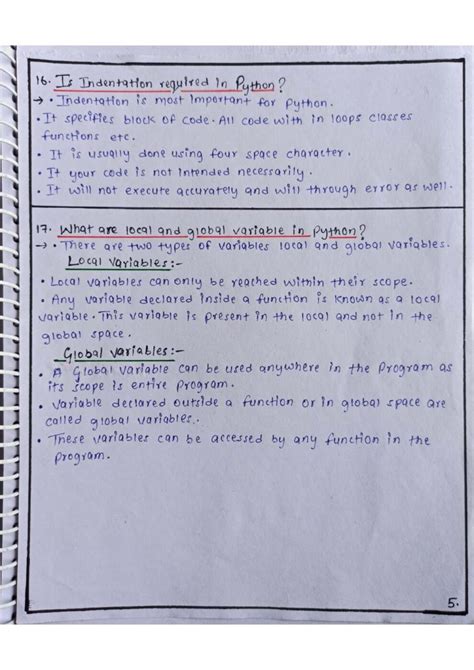 16. Is Indentation required in Python?
→ • Indentation is most important for Python.
• It specifies block of code. All code with in loops classes
functions etc.
• It is usually done using four space character.
• It your code is not intended necessarily.
• It will not execute accurately and will through error as well.
17. What are local and global variable in Python?
→ • There are two types of variables local and global variables.
Local Variables:-
• Local variables can only be reached within their scope.
• Any variable declared inside a function is known as a local
variable. This variable is present in the local and not in the
global space.
Global variables:-
• A Global variable can be used anywhere in the Program as
its scope is entire program.
• Variable declared outside a function or in global space are
called global variables.
• These variables can be accessed by any function in the
Program.
5.